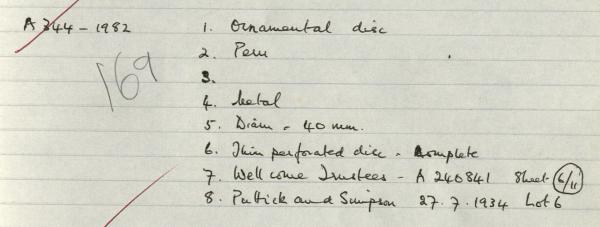 A 344 - 1982
169
1. Ornamental disc
2. Peru
3.
4. Metal
5. Diam = 40 mm.
6. Thin perforated disc - complete
7. Wellcome Trustees - A 240841 Sheet 6/11
8. Puttick and Simpson 27.7.1934 Lot 6